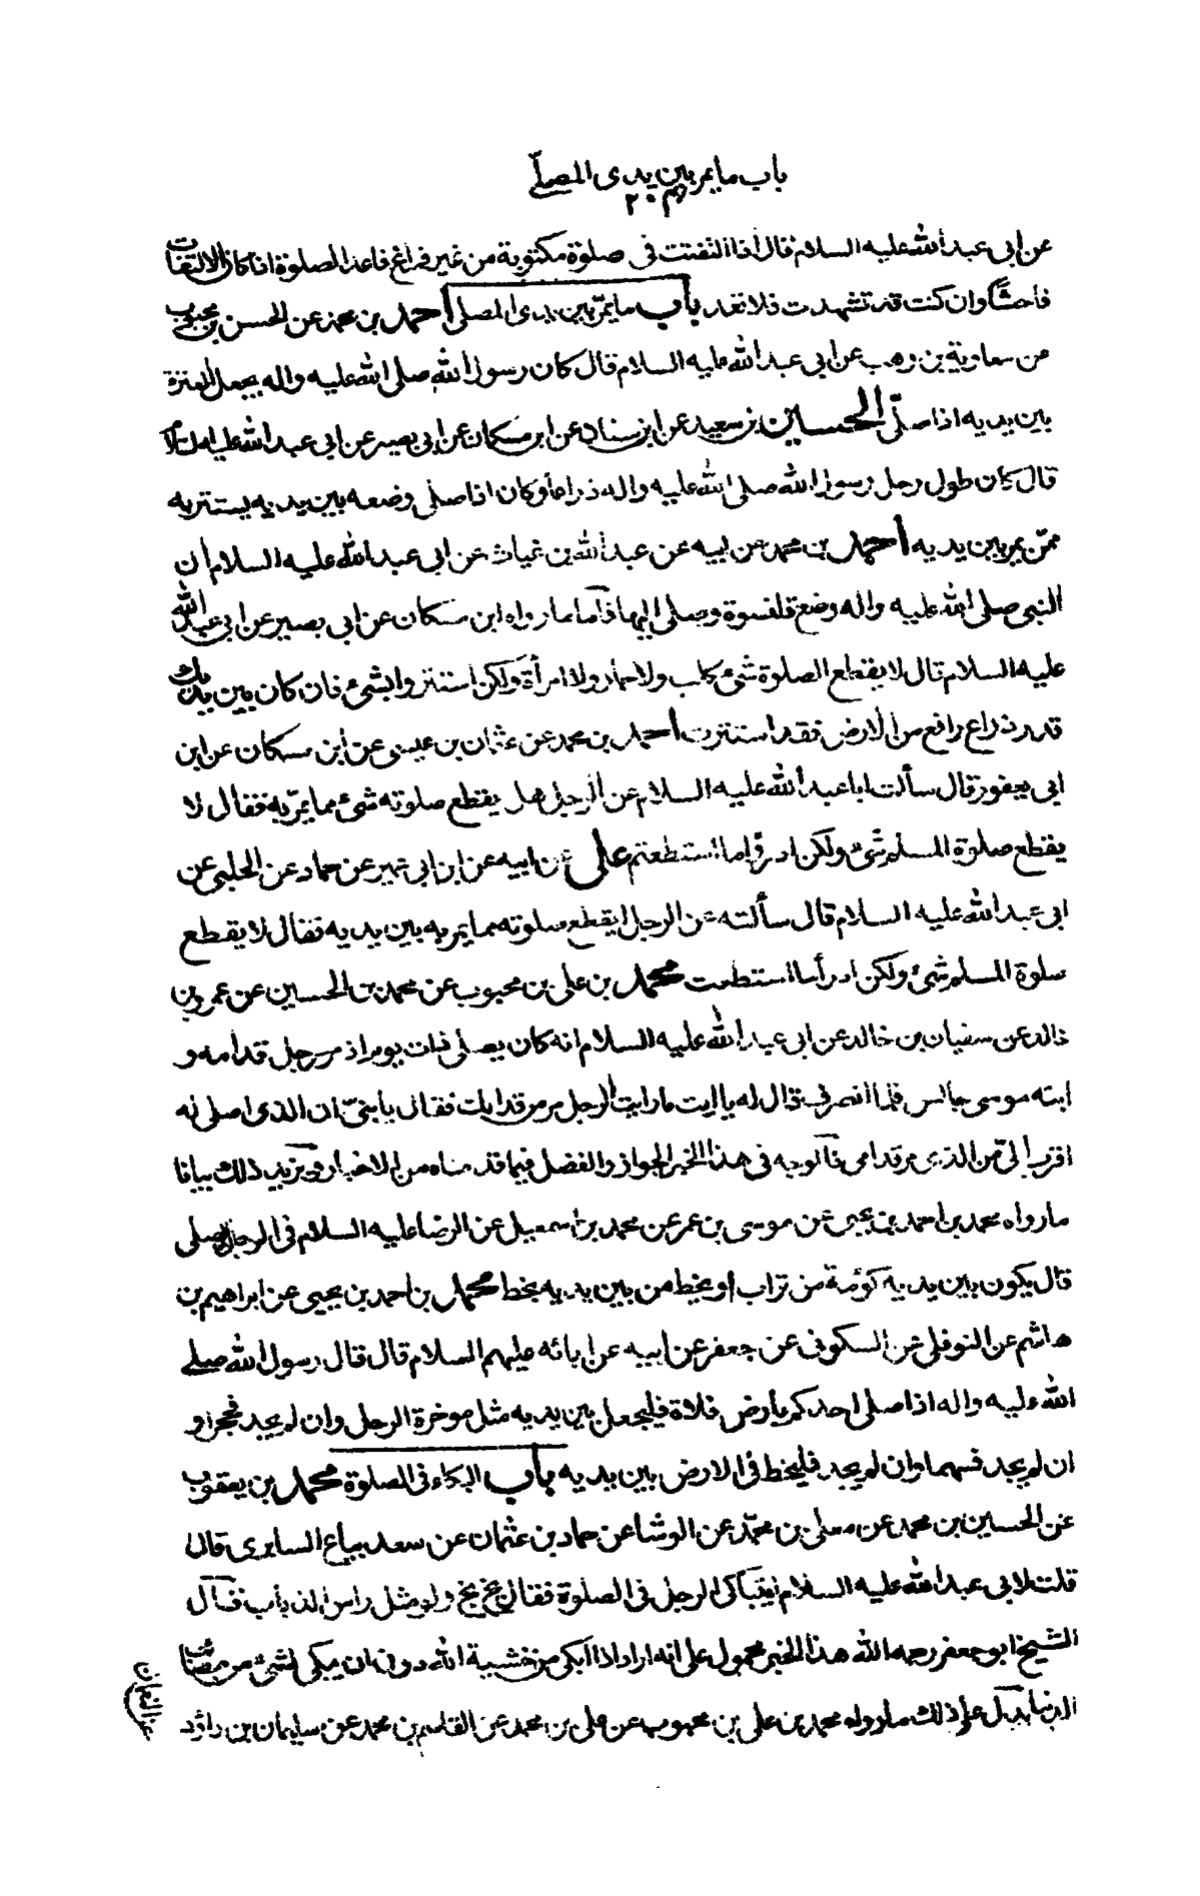 باب ما يمر بين يدى المصلى
٢٠٣
عن ابى عبد الله عليه السلام قال اذا التفتت فى صلوة مكتوبة من غير فراغ فاعد الصلوة اذا كان الالتفات
فاحشًا وان كنت قد تشهدت فلا تعد باب ما يمرّ بين يدى المصلى احمد بن محمد عن الحسن بن محبوب
عن معاوية بن وهب عن ابى عبد الله عليه السلام قال كان رسول الله صلى الله عليه واله يجعل العنزة
بين يديه اذا صلّى الحسين بن سعيد عن ابن سنان عن ابن مسكان عن ابى بصير عن ابى عبد الله عليه السلام
قال كان طول رحل رسول الله صلى الله عليه واله ذراعا وكان اذا صلى وضعه بين يديه يستتر به
ممّن يمر بين يديه احمد بن محمد عن ابيه عن عبد الله بن غياث عن ابى عبد الله عليه السلام ان
النبى صلى الله عليه واله وضع قلنسوة وصلى اليها فاما ما رواه ابن مسكان عن ابى بصير عن ابى عبد الله
عليه السلام قال لا يقطع الصلوة شئ كلب ولا حمار ولا امرأة ولكن استتروا بشئ فان كان بين يديك
قدر ذراع رافع من الارض فقد استترت احمد بن محمد عن عثمان بن عيسى عن ابن مسكان عن ابن
ابى يعفور قال سألت ابا عبد الله عليه السلام عن الرجل هل يقطع صلوته شئ مما يمرّ به فقال لا
يقطع صلوة المسلم شئ ولكن ادرؤا ما استطعتم على عن ابيه عن ابن ابى عمير عن حماد عن الحلبى عن
ابى عبد الله عليه السلام قال سألته عن الرجل ايقطع صلوته مما يمر به بين يديه فقال لا يقطع
صلوة المسلم شئ ولكن ادرأ ما استطعت محمد بن على بن محبوب عن محمد بن الحسين عن عمرو بن
خالد عن سفيان بن خالد عن ابى عبد الله عليه السلام انه كان يصلى ذات يوم اذ مر رجل قدامه و
ابنه موسى جالس فلما انصرف قال له يا ابت ما رايت الرجل مر قدامك فقال يا بنىّ ان الذى اصلى له
اقرب الىّ من الذى مر قدامى فالوجه فى هذا الخبر الجواز والفضل فيما قدمناه من الاخبار ويزيد ذلك بيانا
ما رواه محمد بن احمد بن يحيى عن موسى بن عمر عن محمد بن اسمعيل عن الرضا عليه السلام فى الرجل يصلى
قال يكون بين يديه كؤمة من تراب او يخط من بين يديه بخط محمد بن احمد بن يحيى عن ابراهيم بن
هاشم عن النوفلى عن السكونى عن جعفر عن ابيه عن ابائه عليهم السلام قال قال رسول الله صلى
الله عليه واله اذا صلى احدكم بارض فلاة فليجعل بين يديه مثل موخرة الرحل وان لم يجد فحجرا و
ان لم يجد فسهما وان لم يجد فليخط فى الارض بين يديه باب البكاء فى الصلوة محمد بن يعقوب
عن الحسين بن محمد عن معلى بن محمّد عن الوشا عن حماد بن عثمان عن سعد بياع السابرى قال
قلت لابى عبد الله عليه السلام ايتباكى الرجل فى الصلوة فقال بخ بخ ولو مثل راس الذباب فقال
الشيخ ابو جعفر رحمه الله هذا الخبر محمول على انه اراد اذا البكى من خشية الله دون ان يبكى لشئ من مصائب
الدنيا يدل على ذلك ما رواه محمد بن على بن محبوب عن على بن محمد عن القاسم بن محمد عن سليمان بن داود
عن النعمان